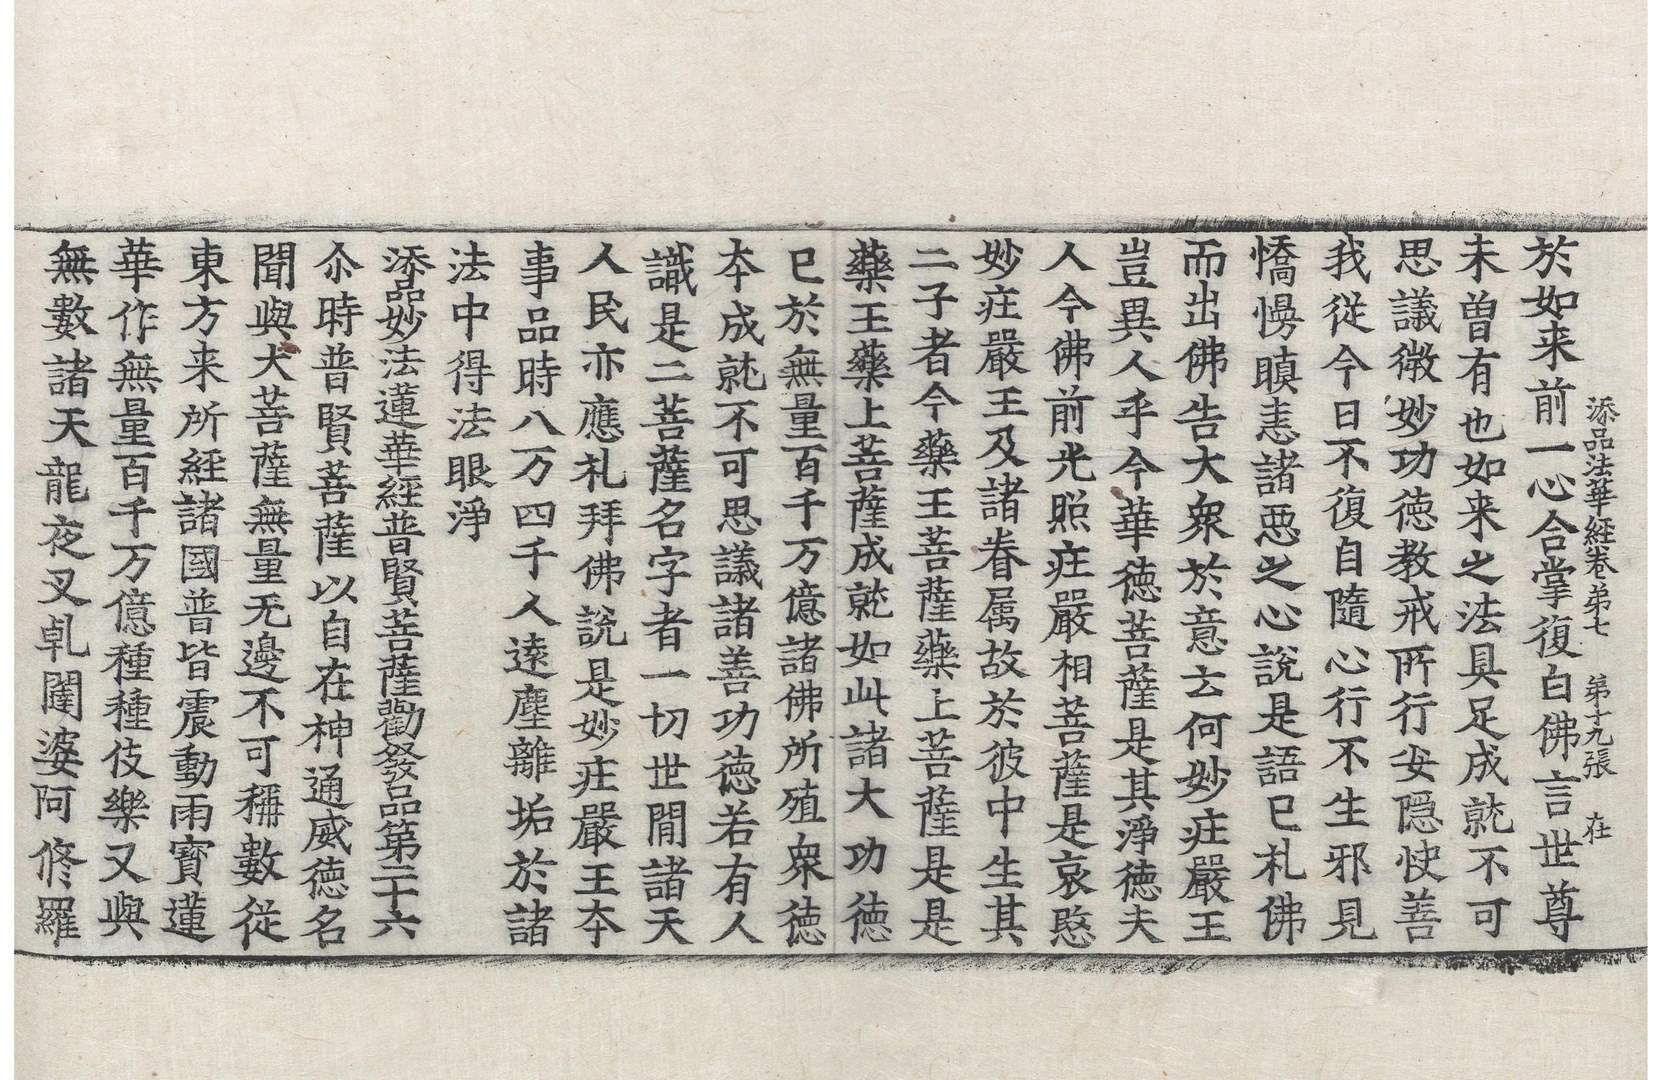 添品法華經卷第七 第十九張 在
於如来前一心合掌復白佛言世尊
未曾有也如来之法具足成就不可
思議微妙功徳教戒所行安隱快善
我從今日不復自隨心行不生邪見
憍慢瞋恚諸惡之心說是語已礼佛
而出佛告大衆於意云何妙莊嚴王
豈異人乎今華徳菩薩是其淨徳夫
人今佛前光照莊嚴相菩薩是哀愍
妙莊嚴王及諸眷属故於彼中生其
二子者今藥王菩薩藥上菩薩是是
藥王藥上菩薩成就如此諸大功徳
已於無量百千万億諸佛所殖衆徳
夲成就不可思議諸善功徳若有人
識是二菩薩名字者一切世間諸天
人民亦應礼拜佛說是妙莊嚴王夲
事品時八万四千人逺塵離垢於諸
法中得法眼淨
添品妙法蓮華經普賢菩薩勸發品第二十六
尒時普賢菩薩以自在神通威徳名
聞與大菩薩無量无邊不可稱數從
東方来所經諸國普皆震動雨寳蓮
華作無量百千万億種種伎樂又與
無數諸天龍夜叉乹闥婆阿修羅